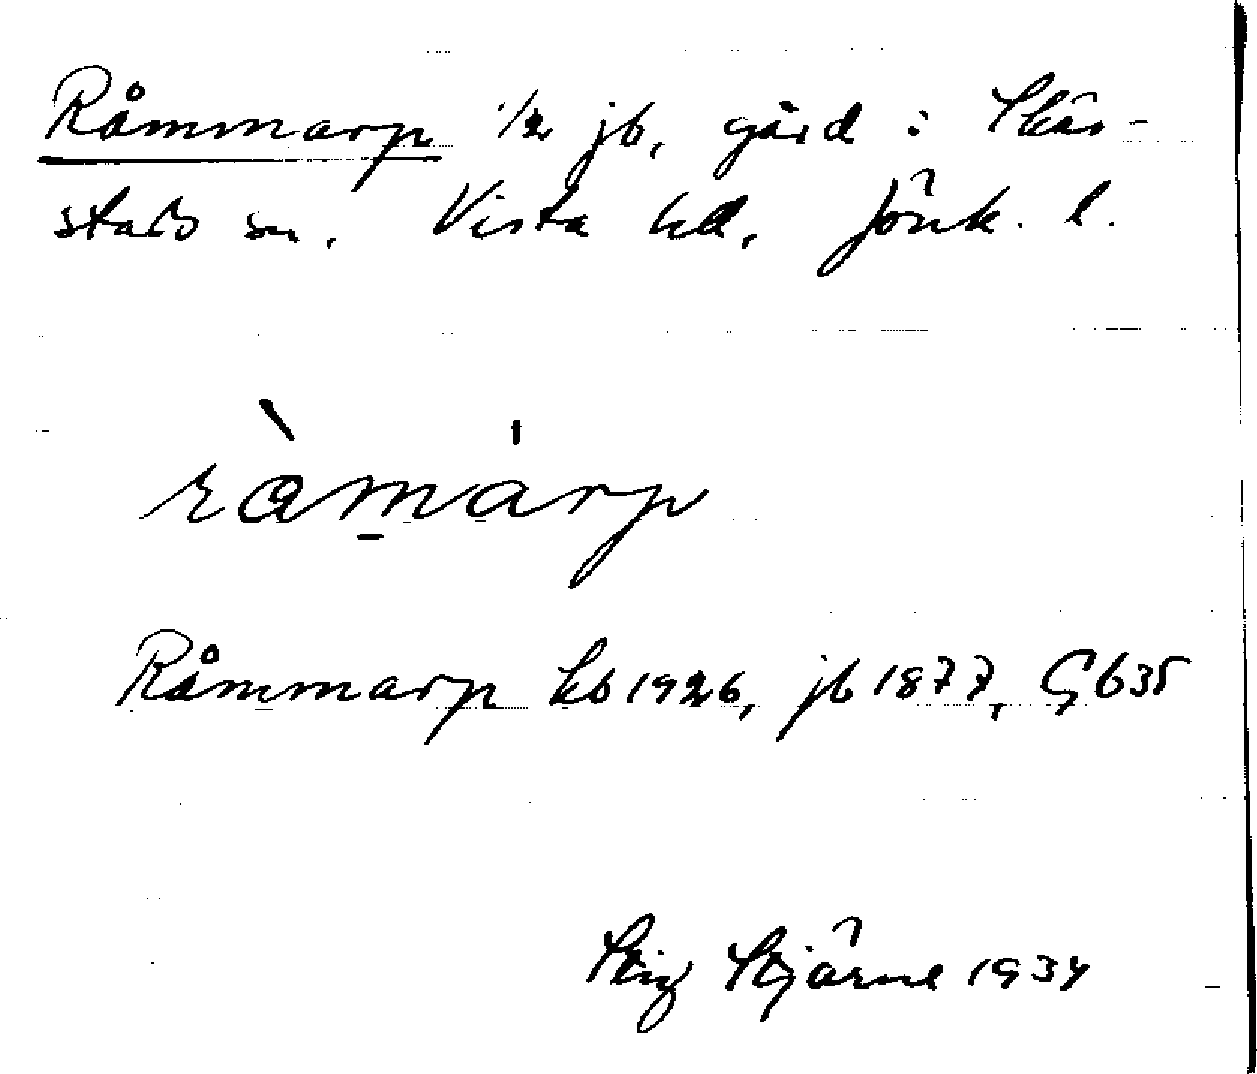 Råmmarp 1/2 jb, gård i Skär-
stads sn. Vista hd, Jönk. l.
ràmárp
Råmmarp kb 1926, jb 1877, Gb 35
Stig Stjärne 1934